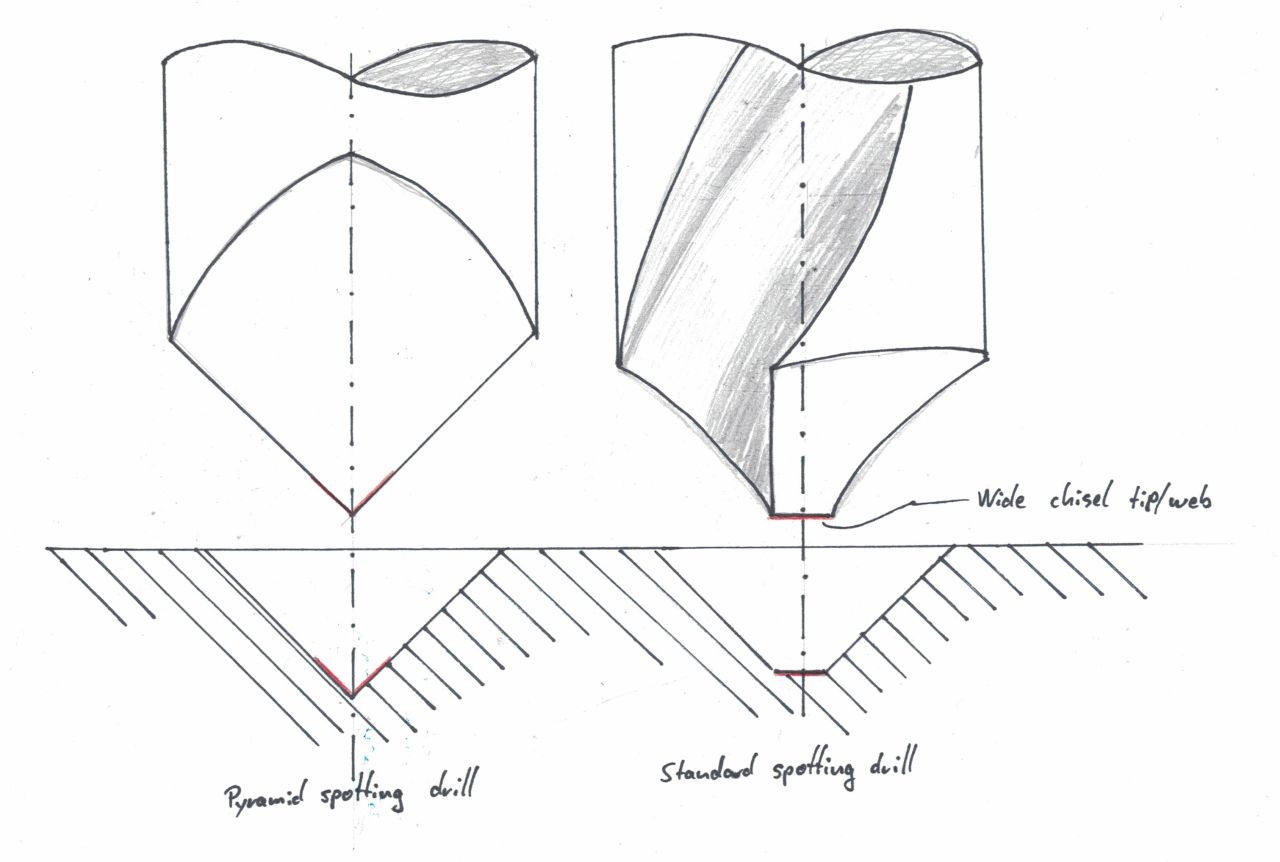 Wide chisel tip/web
Pyramid spotting drill
Standard spotting drill